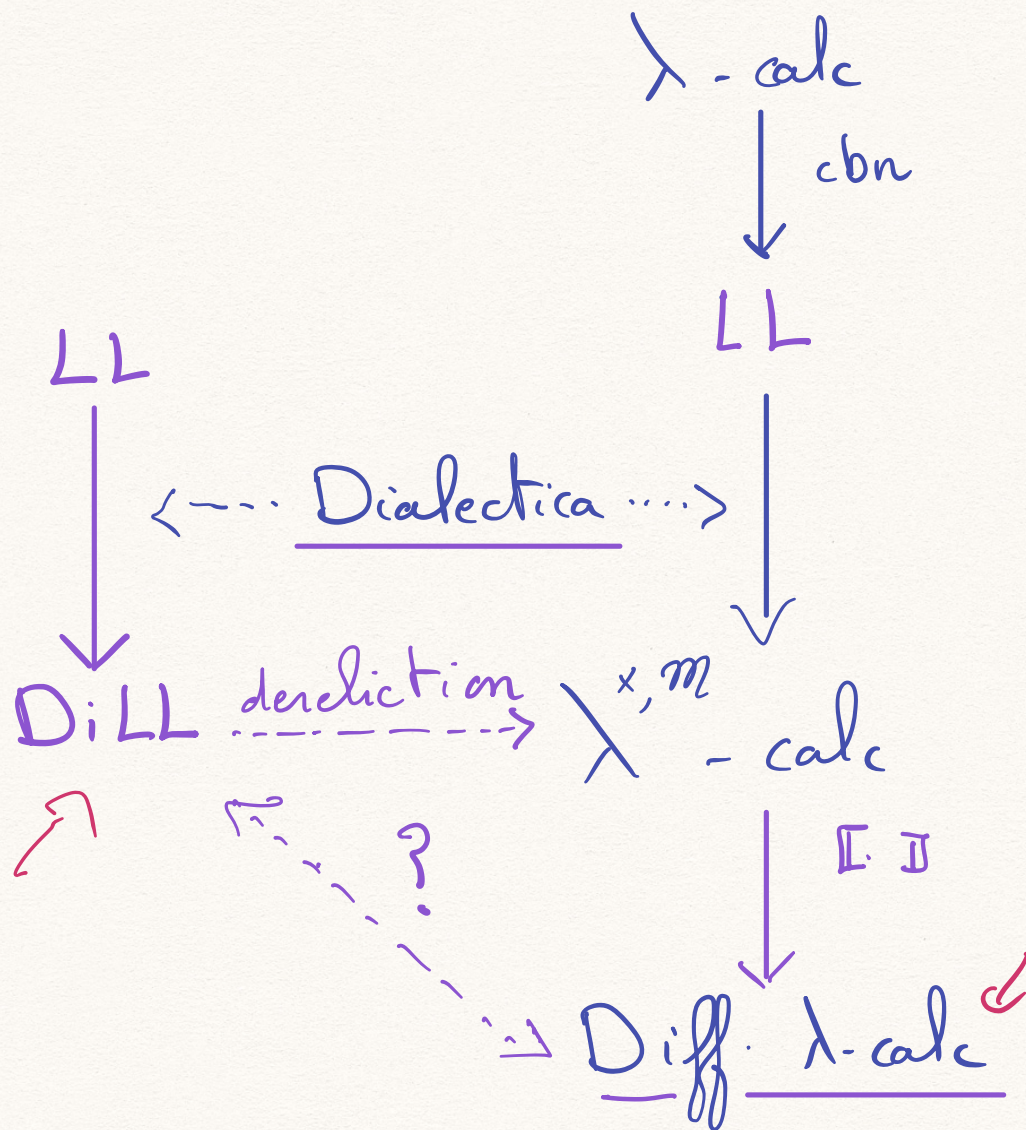 λ - calc
cbn
LL
LL
Dialectica
DiLL
dereliction
λ^{x, m} - calc
?
⟦.⟧
Diff. λ-calc